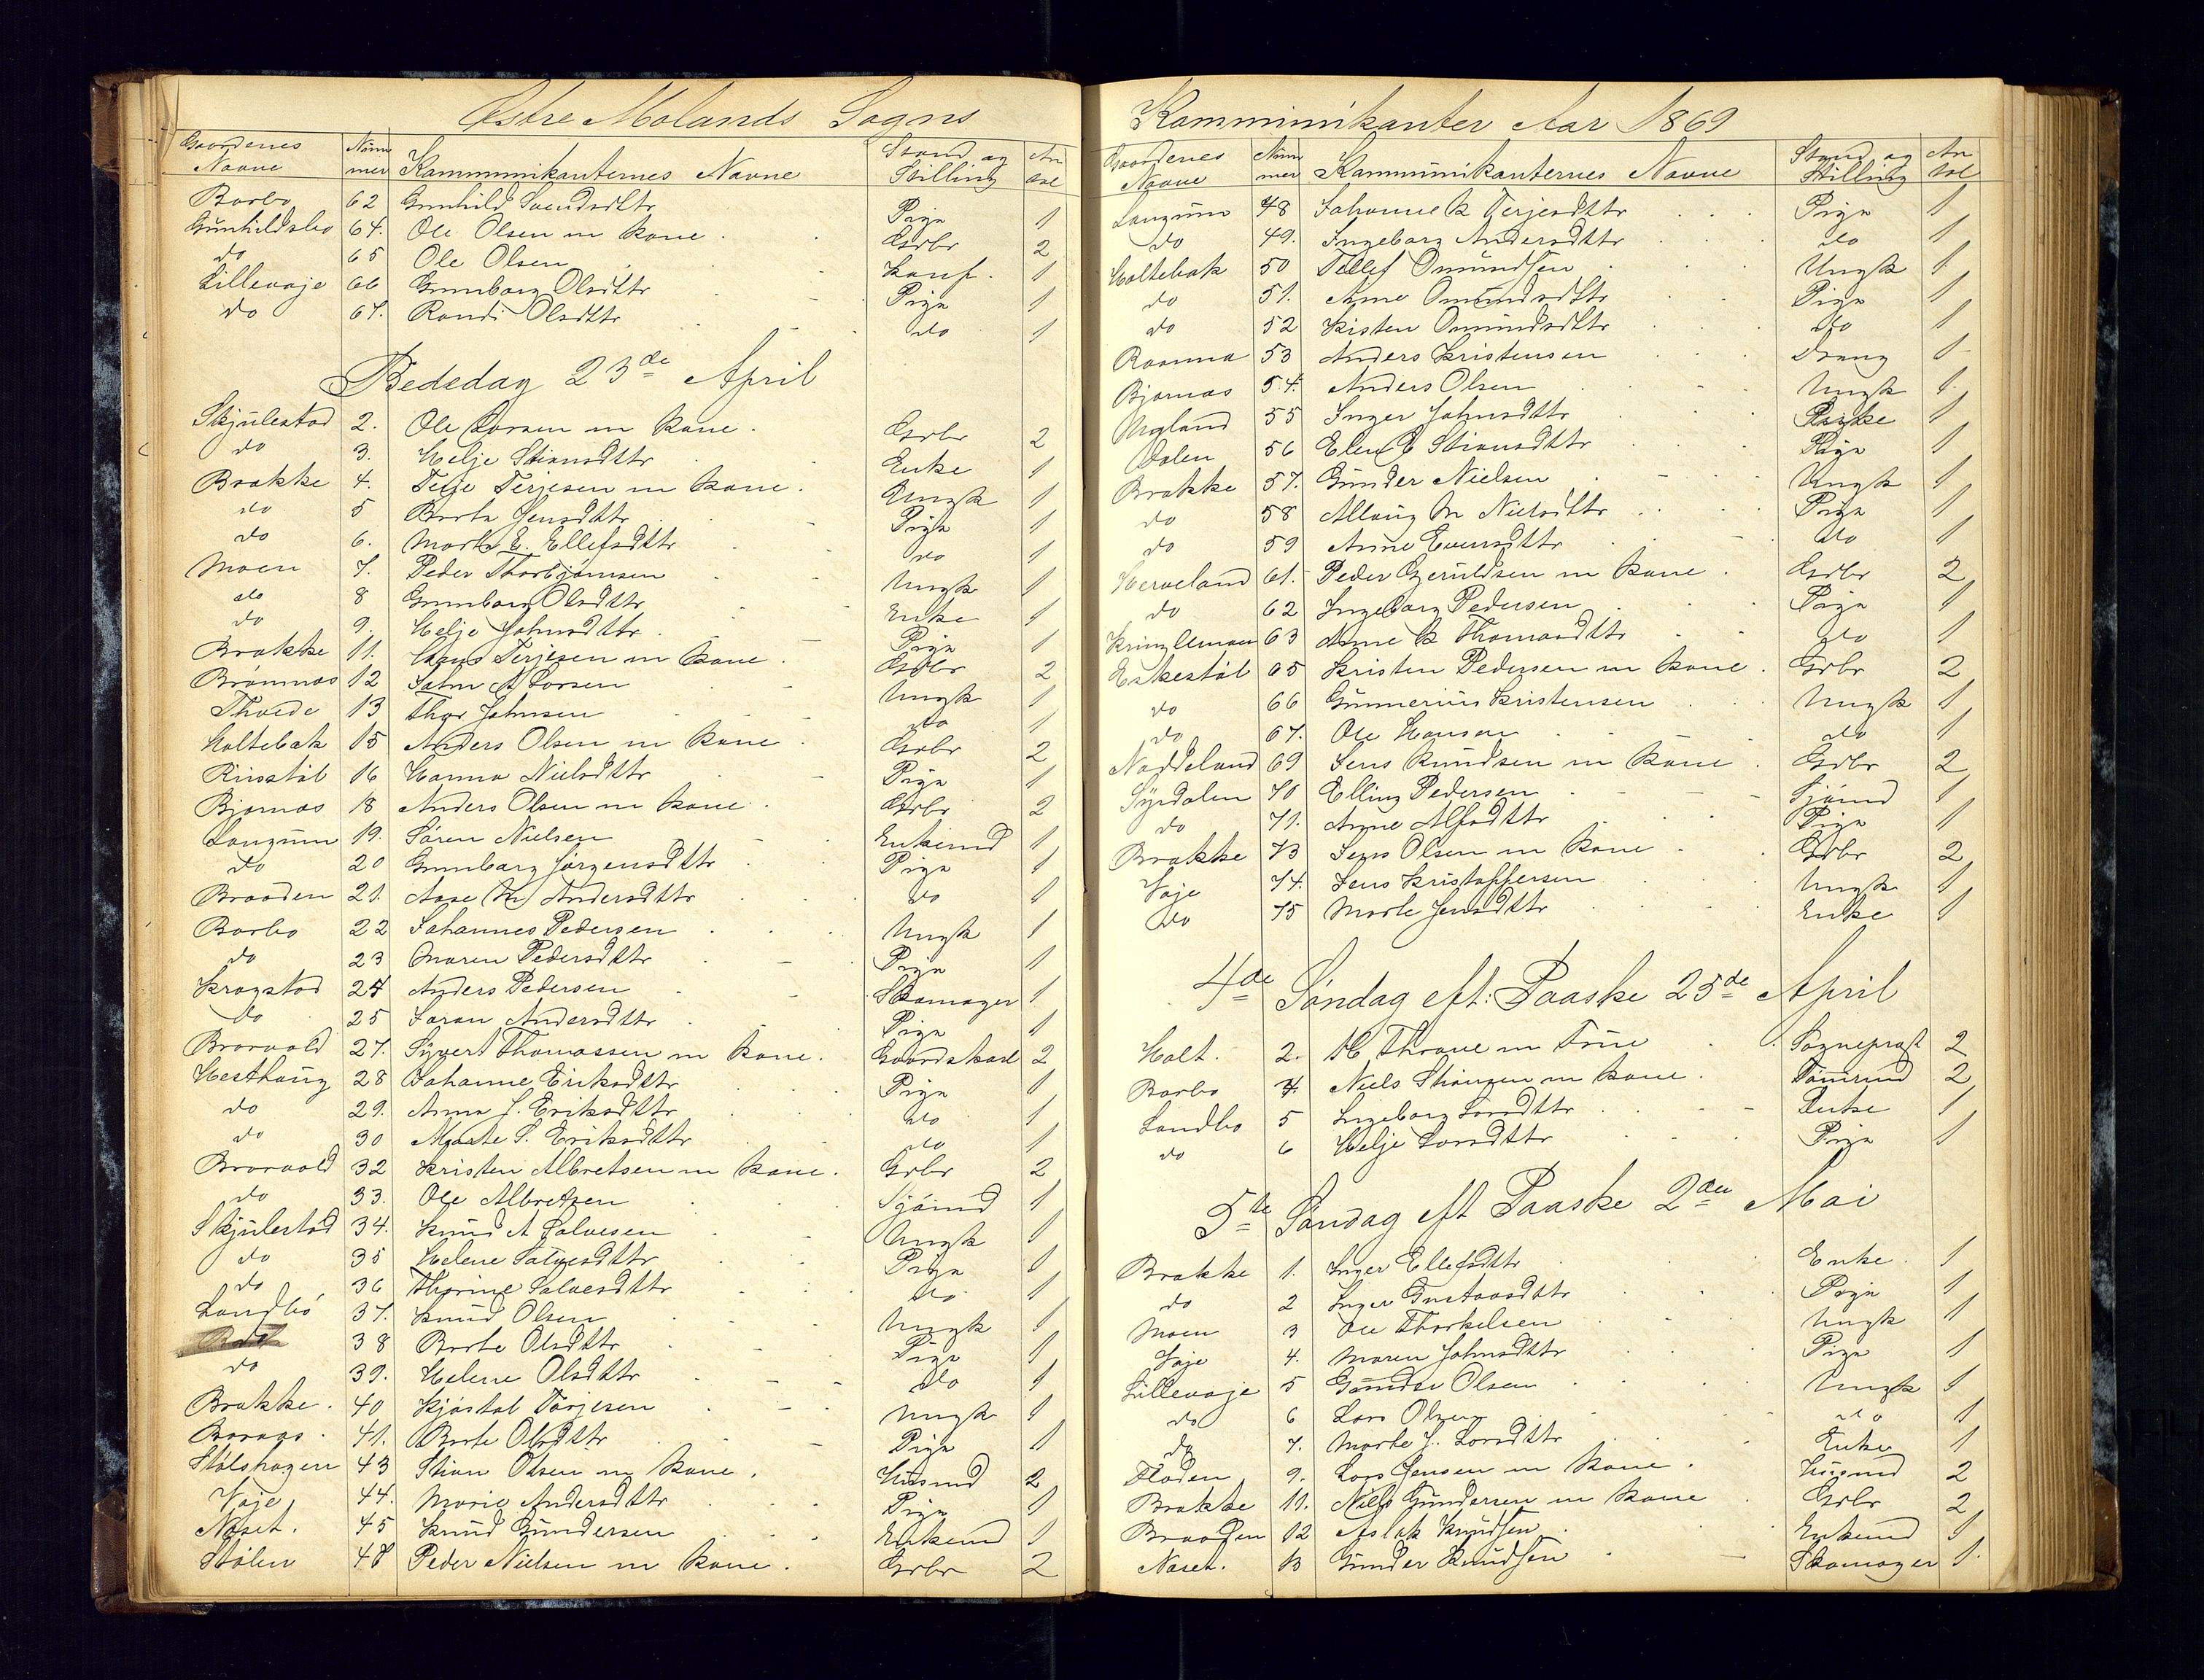 Østre Molands Sogns
Gaardenes Navne Num mer Kommunikanternes Navne Stand og Stilling An tal
Barbo 62 Gunhild Svendsdttr Pige 1
Gunhildsbo 64. Ole Olsen m kone Grbr 2
do 65 Ole Olsen Konf. 1
Lillevaje 66 Gunborg Olsdttr Pige 1
do 67. Randi Olsdttr do 1
Bededag 23de April
Skjulestad 2. Ole Larsen m kone. Grbr 2
do 3. Helje Stiansdttr Enke 1
Brække 4. Terje Terjesen m kone. Ungk 1
do 5 Berte Jensdttr Pige 1
do 6. Marte E. Ellefsdttr do 1
Moen 7. Peder Thorbjørnsen Ungk 1
do 8 Gunborg Olsdttr Enke 1
do 9. Helje Johnsdttr Pige 1
Brække 11. Terjesen m kone. Grbr 2
12 John A Larsen Ungk 1
Thvede 13 Thor Johnsen do 1
Holtebæk 15 Anders Olsen m kone Grbr 2
16 Hanna Nielsdttr Pige 1
Bjornæs 18 Anders Olsen m kone. Grbr 2
Langum 19. Søren Nielsen Enkemd 1
do 20 Gunborg Jørgensdttr Pige 1
Braaden 21. Aase M Andersdttr do 1
Barbo 22 Johannes Pedersen Ungk 1
do 23 Maren Pedersdttr Pige 1
Kragstad 24 Anders Pedersen Skomager 1
do 25 Andersdttr Pige 1
27. Syvert Thomassen m kone. Gaardskarl 2
Hesthaug 28 Johanne Eriksdttr Pige 1
do 29. Anna J. Eriksdttr do 1
do 30 Marte S. Eriksdttr do 1
32 Kristen Albretsen m kone. Grbr 2
do 33. Ole Albretsen Sjømd 1
Skjulestad 34. Knud A Salvesen Ungk 1
do 35 Helene Salvesdttr Pige 1
do 36 Thorine Salvesdttr do 1
Landbø 37. Knud Olsen Ungk 1
38 Berte Olsdttr Pige 1
do 39. Helene Olsdttr do 1
Brække. 40 Terjesen Ungk 1
41. Berte Olsdttr Pige 1
Stølshagen 43 Stian Olsen m kone. Husmd 2
Vaje 44. Marie Andersdttr Pige 1
Næset. 45 Knud Gundersen Enkemd 1
Stølen 48 Peder Nielsen m kone. Grbr 2
Kommunikanter Aar 1869
Gaardenes Navne Num mer Kommunikanternes Navne Stand og Stilling An tal
Langum 48 Johanne K Terjesdttr Pige 1
do 49. Ingeborg Andersdttr do 1
Holtebæk 50 Tellef Omundsen Ungk 1
do 51. Anne Omundsdttr Pige 1
do 52 Kisten Omundsdttr do 1
53 Anders Kristensen Dreng 1
Bjornæs 54. Anders Olsen Ungk 1
Myland 55 Inger Johnsdttr 1
Dalen 56 Elen Stiansdttr Pige 1
Brække 57. Gunder Nielsen Ungk 1
do 58 M Nielsdttr Pige 1
do 59 Anne Evensdttr do 1
Herveland 61. Peder Gjeruldsen m kone. Grbr 2
do 62 Ingeborg Pedersen Pige 1
63 Anne K Thomasdttr do 1
Eskestøl 65 Kristen Pedersen m kone. Grbr 2
do 66 Gunnerius Kristensen Ungk 1
do 67. Ole Hansen do 1
Næddeland 69 Jens Knudsen m kone Grbr 2
Syrdalen 70 Elling Pedersen Sjømd 1
do 71. Anne Alfsdttr Pige 1
Brække 73 Jens Olsen m kone Grbr 2
Vaje 74. Jens Kristoffersen Ungk 1
do 75 Marte Jensdttr Enke 1
4de Søndag eft: Paaske 25de April
Holt. 2. H Thrane m Frue Sogneprest 2
Barbo 4. Niels m kone. Tømmd 2
Landbo 5 Ingeborg Larsdttr Enke 1
do 6 Helje Larsdttr Pige 1
5te Søndag eft Paaske 2den Mai
Brække 1. Inger Ellefsdttr Enke. 1
do 2 Inger Gustavsdttr Pige 1
Moen 3 Ole Thorkelsen Ungk 1
Vaje 4. Maren Johnsdttr Pige 1
Lillevaje 5 Gunder Olsen Ungk 1
do 6 Lars Olsen do 1
do 7. Marte J. Larsdttr Enke 1
Floden 9. Lars Jensen m kone. Husmd 2
Brække 11. Niels Gundersen m kone Grbr 2
Braaden 12 Aslak Knudsen Enkemd 1
Næset. 13 Gunder Knudsen Skomager 1.